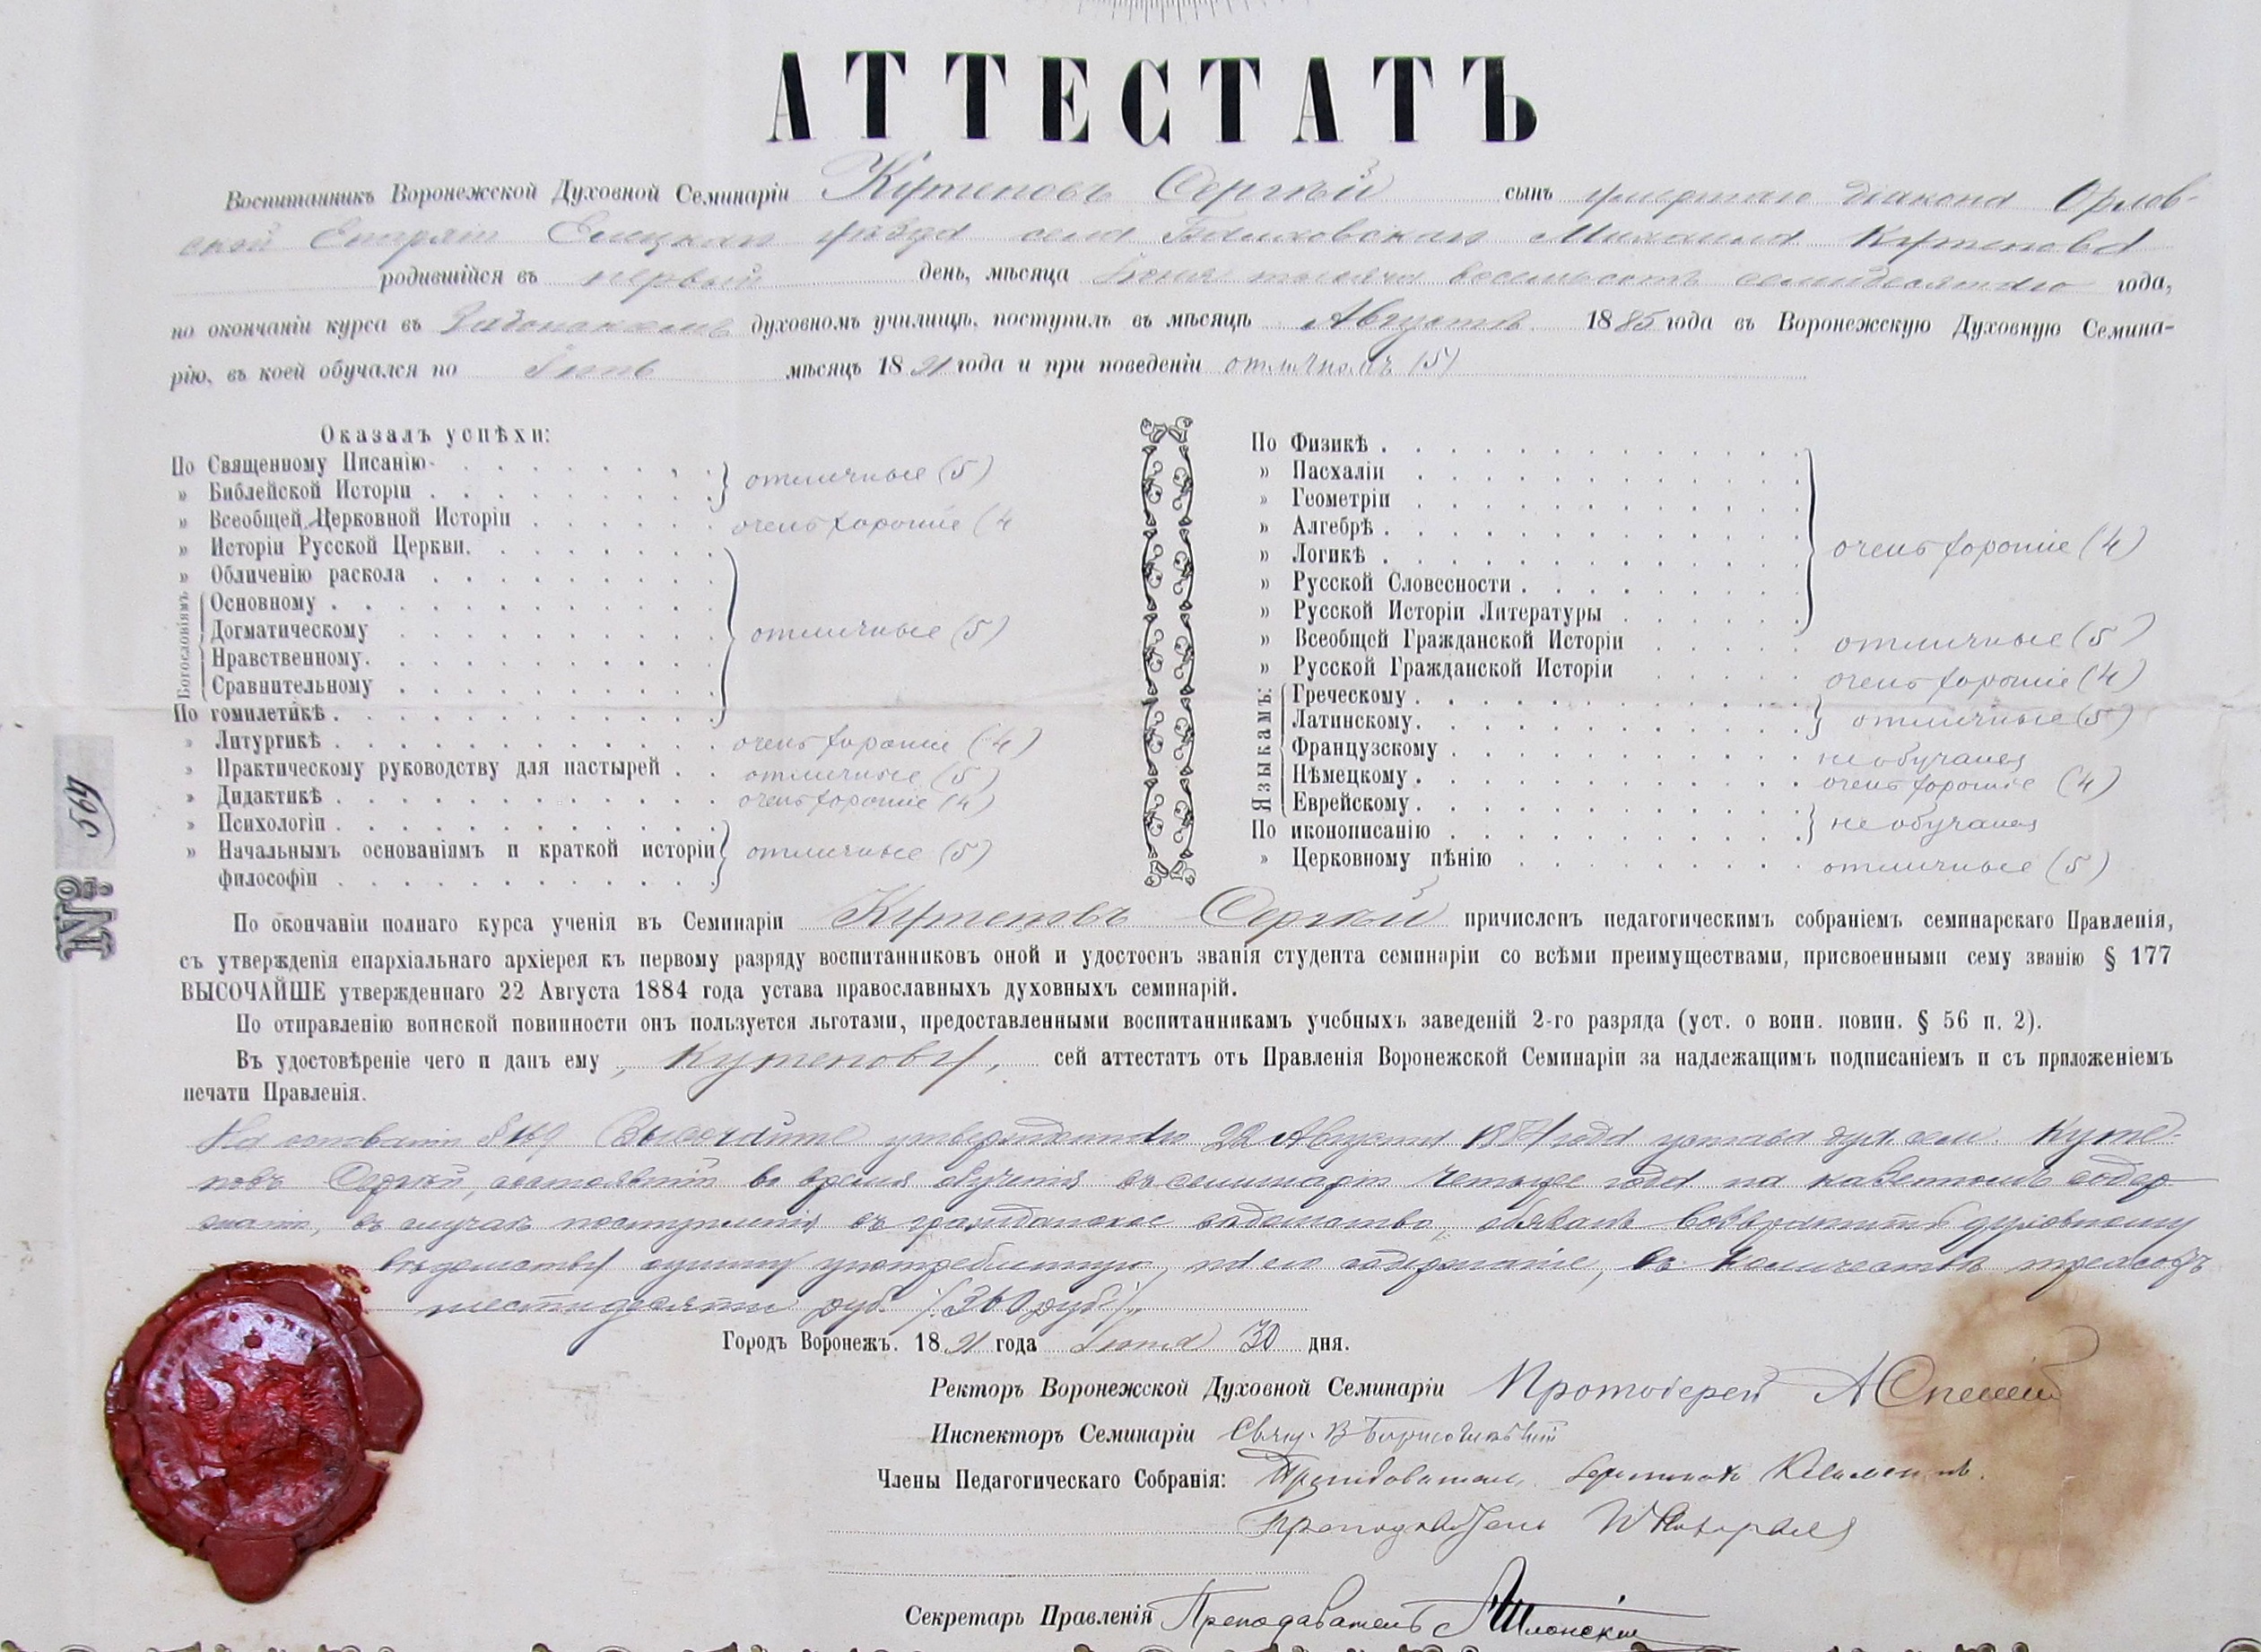 АТТЕСТАТЪ
Воспитанникъ Воронежской Духовной Семинаріи Кутеповъ Сергѣй сынъ умершаго діакона Орлов-
ской Епархіи Елецкаго уѣзда села Михаила Кутепова
родившійся въ первый день, мѣсяца Іюня тысяча восемьсотъ семидесятаго года,
по окончаніи курса въ Задонскомъ духовномъ училищѣ, поступилъ въ мѣсяцѣ Августѣ 1885 года въ Воронежскую Духовную Семина-
рію, въ коей обучался по Іюнь мѣсяцъ 1891 года и при поведеніи отличномъ (5)
Оказалъ успѣхи:
По Священному Писанію
» Библейской Исторіи } отличные (5)
» Всеобщей Церковной Исторіи очень хорошіе (4
» Исторіи Русской Церкви.
» Обличенію раскола
Богословіямъ
Основному
Догматическому отличные (5)
Нравственному.
Сравнительному
По гомилетикѣ
» Литургикѣ очень хорошіе (4)
» Практическому руководству для пастырей отличные (5)
» Дидактикѣ очень хорошіе (4)
» Психологіи
» Начальнымъ основаніямъ и краткой исторіи отличные (5)
философіи
По Физикѣ
» Пасхаліи
» Геометріи
» Алгебрѣ
» Логикѣ очень хорошіе (4)
» Русской Словесности
» Русской Исторіи Литературы
» Всеобщей Гражданской Исторіи отличные (5)
» Русской Гражданской Исторіи очень хорошіе (4)
Языкамъ:
Греческому
Латинскому. } отличные (5)
Французскому не обучался
Нѣмецкому очень хорошіе (4)
Еврейскому
По иконописанію } не обучался
» Церковному пѣнію отличные (5)
№ 495
По окончаніи полнаго курса ученія въ Семинаріи Кутеповъ Сергѣй причисленъ педагогическимъ собраніемъ семинарскаго Правленія,
съ утвержденія епархіальнаго архіерея къ первому разряду воспитанниковъ оной и удостоенъ званія студента семинаріи со всѣми преимуществами, присвоенными сему званію § 177
ВЫСОЧАЙШЕ утвержденнаго 22 Августа 1884 года устава православныхъ духовныхъ семинарій.
По отправленію воинской повинности онъ пользуется льготами, предоставленными воспитанникамъ учебныхъ заведеній 2-го разряда (уст. о воин. повин. § 56 п. 2).
Въ удостовѣреніе чего и данъ ему, Кутепову, сей аттестатъ отъ Правленія Воронежской Семинаріи за надлежащимъ подписаніемъ и съ приложеніемъ
печати Правленія.
На основаніи § 169 Высочайше утвержденнаго 22 Августа 1884 года устава дух. сем. Куте-
повъ Сергѣй, состоявшій во время обученія въ семинаріи четыре года на казенномъ содер
жаніи, въ случаѣ поступленія въ гражданское вѣдомство, обязанъ возвратить духовному
вѣдомству сумму употребленную на его содержаніе, въ количествѣ трехсотъ
шестидесяти руб. /360 руб./.
Городъ Воронежъ. 1891 года Іюня 30 дня.
Ректоръ Воронежской Духовной Семинаріи Протоіерей А Спасскій
Инспекторъ Семинаріи Свящ. В Борисоглѣбскій
Члены Педагогическаго Собранія: Преподаватель
Преподаватель
Секретарь Правленія Преподаватель